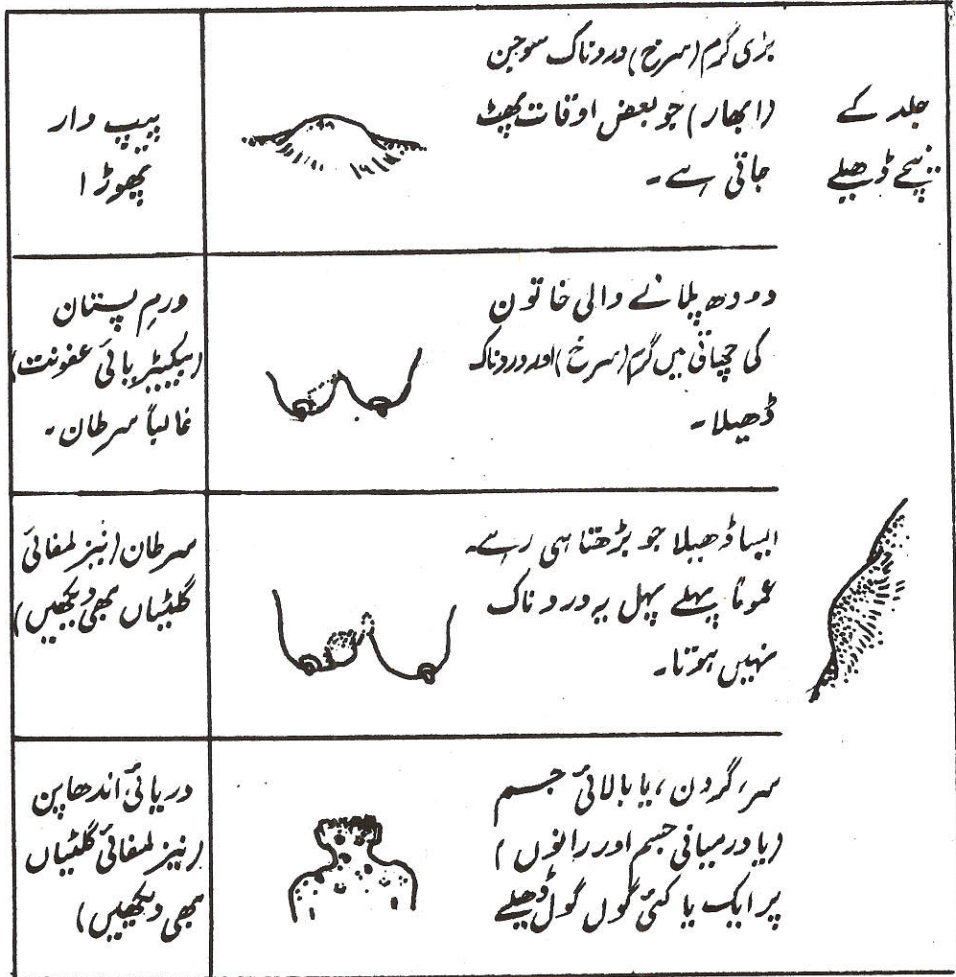 جلد کے
نیچے ڈھیلے
بڑی گرم (سرخ) دردناک سوجن
(ابھار) جو بعض اوقات پھٹ
جاتی ہے۔
پیپ دار
پھوڑا
دودھ پلانے والی خاتون
کی چھاتی میں گرم (سرخ) اور دردناک
ڈھیلا۔
ورم پستان
(بیکٹیریائی عفونت)
غالباً سرطان۔
ایسا ڈھیلا جو بڑھتا ہی رہے۔
عموماً پہلے پہل یہ دردناک
نہیں ہوتا۔
سرطان (نیز لمفائی
گلٹیاں بھی دیکھیں)
سر، گردن، یا بالائی جسم
(یا درمیانی جسم اور رانوں)
پر ایک یا کئی گول گول ڈھیلے
دریائی اندھاپن
(نیز لمفائی گلٹیاں
بھی دیکھیں)